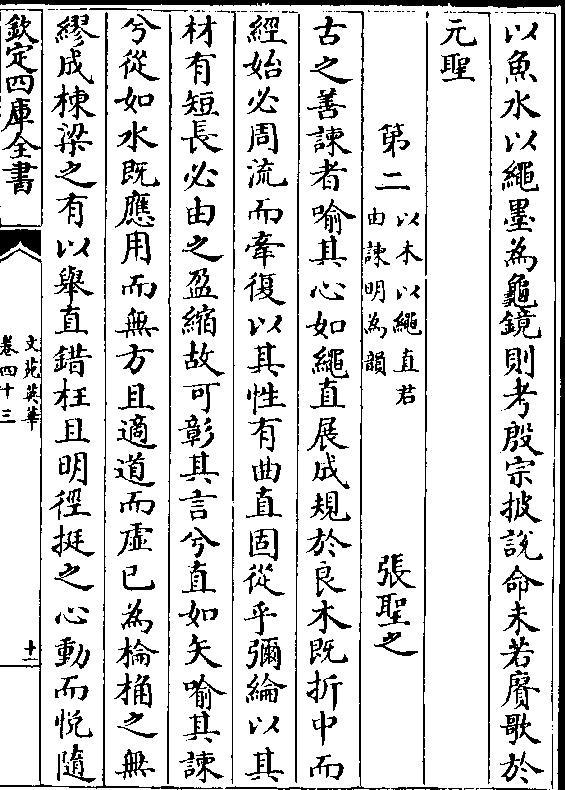 以魚水以繩墨為龜鏡則考殷宗披說命未若賡歌於
元聖
第二
以木以繩直君
由諫明為韻
張聖之
古之善諫者喻其心如繩直展成規於良木既折中而
經始必周流而牽復以其性有曲直固從乎彌綸以其
材有短長必由之盈縮故可彰其言兮直如矢喻其諫
兮從如水既應用而無方且適道而虛已為棆桷之無
繆成棟梁之有以舉直錯枉且明徑挺之心動而悅隨
欽定四庫全書
文苑英華
卷四十三
十二